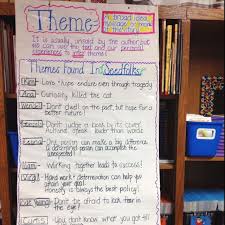 Theme
A broad idea,
message or moral
of the story
It is usually unsaid by the author but
we can use the text and our personal
experiences to infer theme!
Themes Found In Seedfolks
Kim - Love + hope endure even through tragedy
Ana - Curiosity killed the cat
Wendell - Don't dwell on the past, but hope for a
better future
Gonzalo - Don't judge a book by its cover
Actions speak louder than words
Leona - One person can make a big difference
A determined person can accomplish the
unexpected!
Sam - Working together leads to success!
Hard work + determination can help you
attain your goal!
Honesty is always the best policy!
Don't be afraid to look fear in
the eye!
Curtis - You don't know what you got till